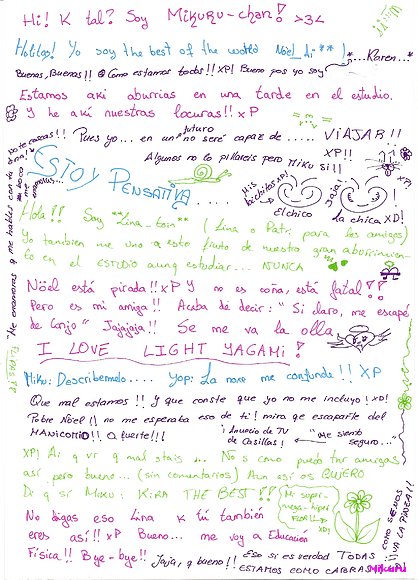 Hi! K tal? Soy Mikuru-chan! >3<
Holitas! Yo soy the best of the world Nöel
*...Karen...*
Buenas, Buenas!! Como estamos todos!! XP! Bueno pos yo soy
Estamos aki aburrias en una tarde en el estudio.
Y he akí nuestras locuras!! xP
Pues yo... en un futuro no seré capaz de ..... VIAJAR!!
Algunos no lo pillareis pero Miku si!! XP!!
ESTOY PENSATIVA......
Mis bichitos XP!
El chico
Jaja!
la chica XD!
Hola!! Soy **Lina_ **
(Lina o Patri para los amigos)
Yo tambien me uno a este de nuestro gran aburrimien-
to en el ESTUDIO aunq estudiar... NUNCA
Nöel está pirada!! xP Y no es coña, está fatal!!
Pero es mi amiga!! Acaba de decir: "Si claro, me escapé
de Conjo" Jajajaja!! Se me va la olla.
I LOVE LIGHT YAGAMI!
Miku: Describemelo..... Yop: La noxe me confunde!! XP
Que mal estamos!! Y que conste que yo no me incluyo! XD!
Pobre Nöel (! no me esperaba eso de ti! mira qe escaparte del
MANICOMIO!! Q fuerte!!!
¡Anuncio de TV de Casillas!
"Me siento seguro..."
XP! Ai q mal stais... No s como puedo tnr amigas
así pero bueno... (sin comentarios) Aun asi os QUIERO
Di q si Miku: KIRA THE BEST!!
Mi super-mega-hiper FLOR!! XD!
No digas eso Lina k tú también
eres así!! xP Bueno... me voy a Educación
Física!! Bye-bye!! Jaja, q bueno!
Eso si es verdad TODAS
ESTAMOS como CABRAS
COMO SEMOS
¡¡VIVA LA PAREJA!!
Mikuru